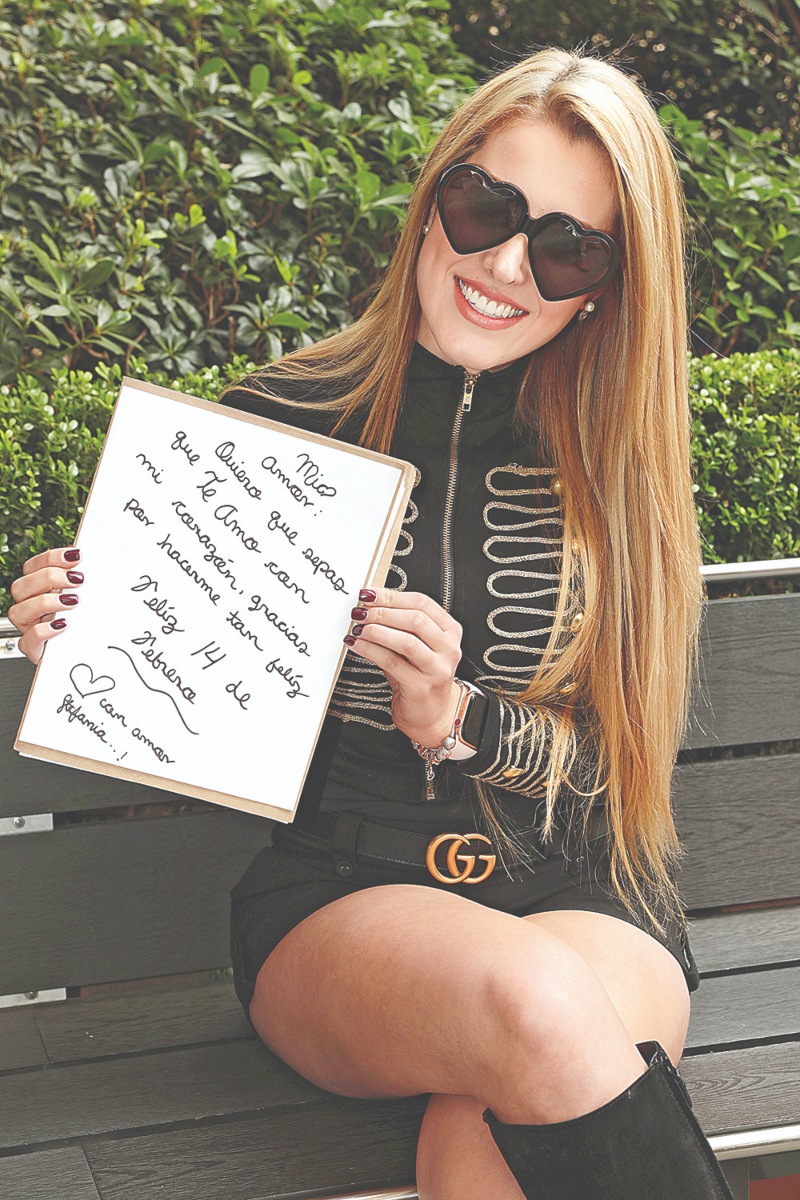 Mio
amor:
Quiero que sepas
que Te Amo con
mi corazón, gracias
por hacerme tan felíz
Felíz 14 de
Febrero
con amor
Stefania...!
GG